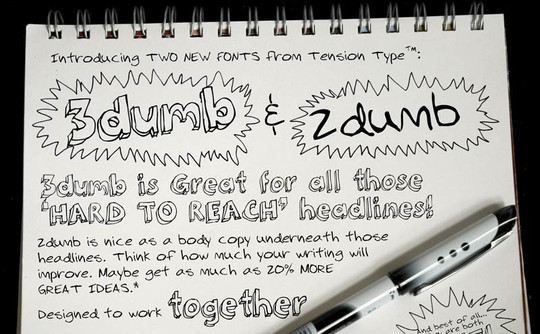 Introducing TWO NEW FONTS from Tension Type™:
3dumb & 2dumb
3dumb is Great for all those
'HARD TO REACH' headlines!
2dumb is nice as a body copy underneath those
headlines. Think of how much your writing will
improve. Maybe get as much as 20% MORE
GREAT IDEAS.*
Designed to work together
And best of all...
are both